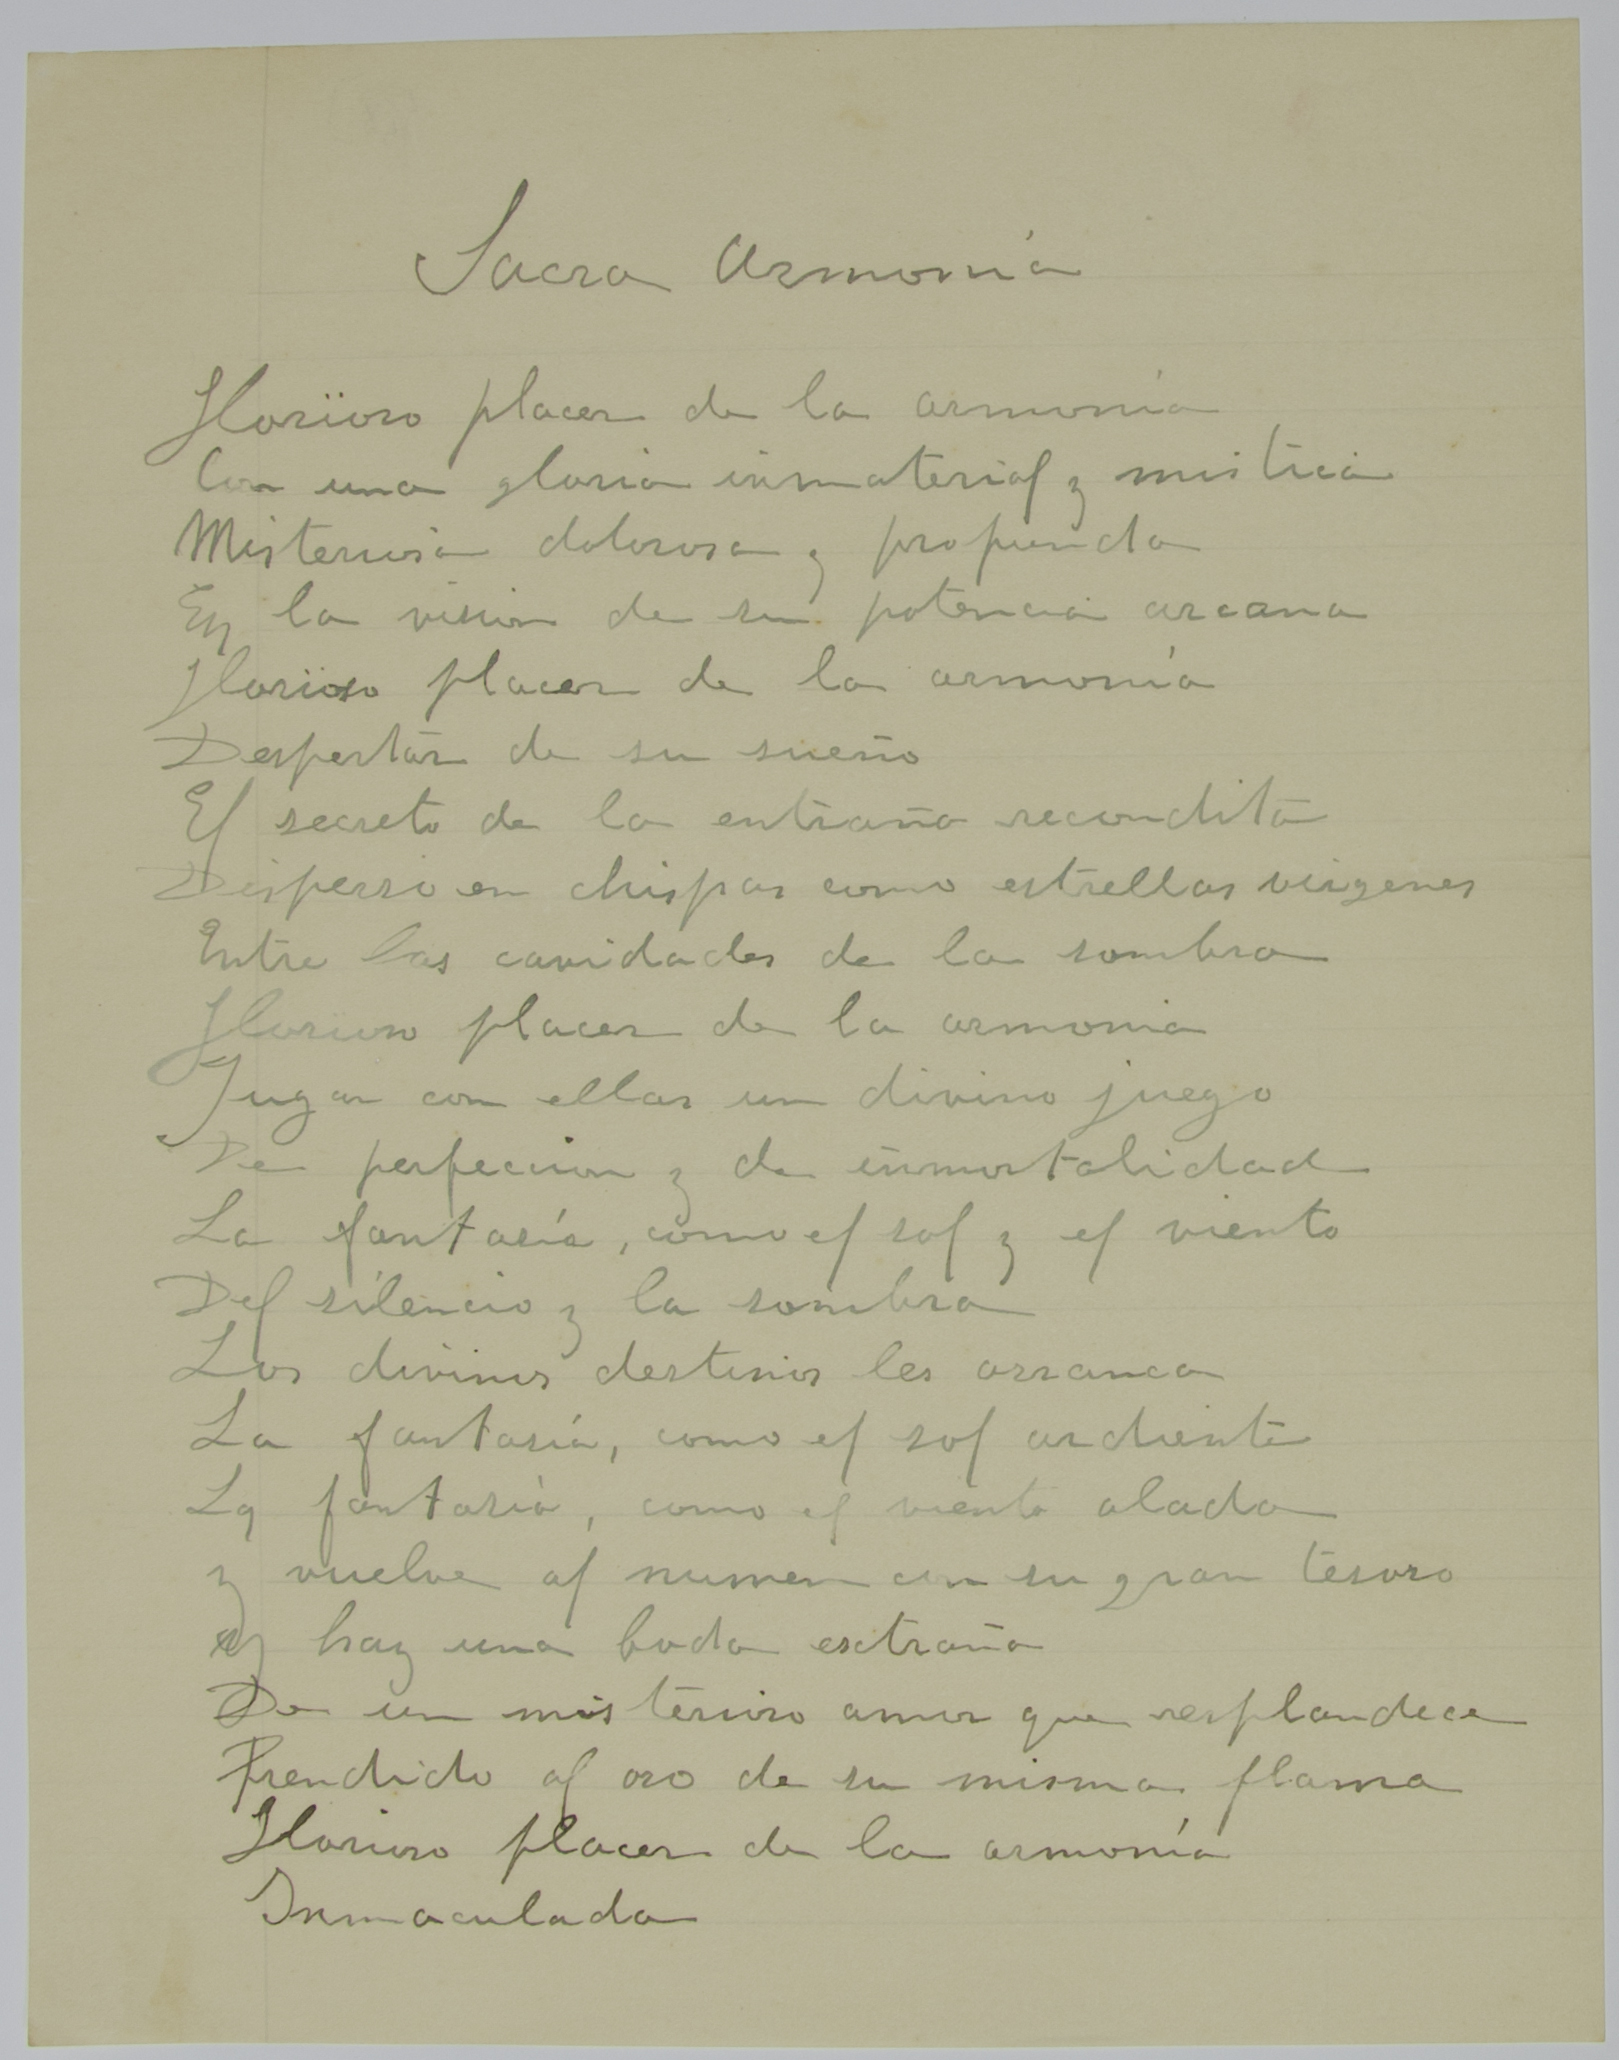 Sacra Armonía
Glorïoso placer de la armonía
Con una gloria inmaterial y mistica
Misteriosa dolorosa y profunda
En la vision de su potencia arcana
Glorïoso placer de la armonía
Despertar de su sueño
El secreto de la entraña recondita
Disperso en chispas como estrellas virgenes
Entre las cavidades de la sombra
Glorioso placer de la armonia
Jugar con ellas un divino juego
De perfeccion y de inmortalidad
La fantasía, como el sol y el viento
Del silencio y la sombra
Los divinos destinos les arranca
La fantasía, como el sol ardiente
La fantasía, como el viento alada
y vuelve al numen con su gran tesoro
y hay una boda extraña
De un misterioso amor que resplandece
Prendido al oro de su misma flama
Glorioso placer de la armonía
Inmaculada